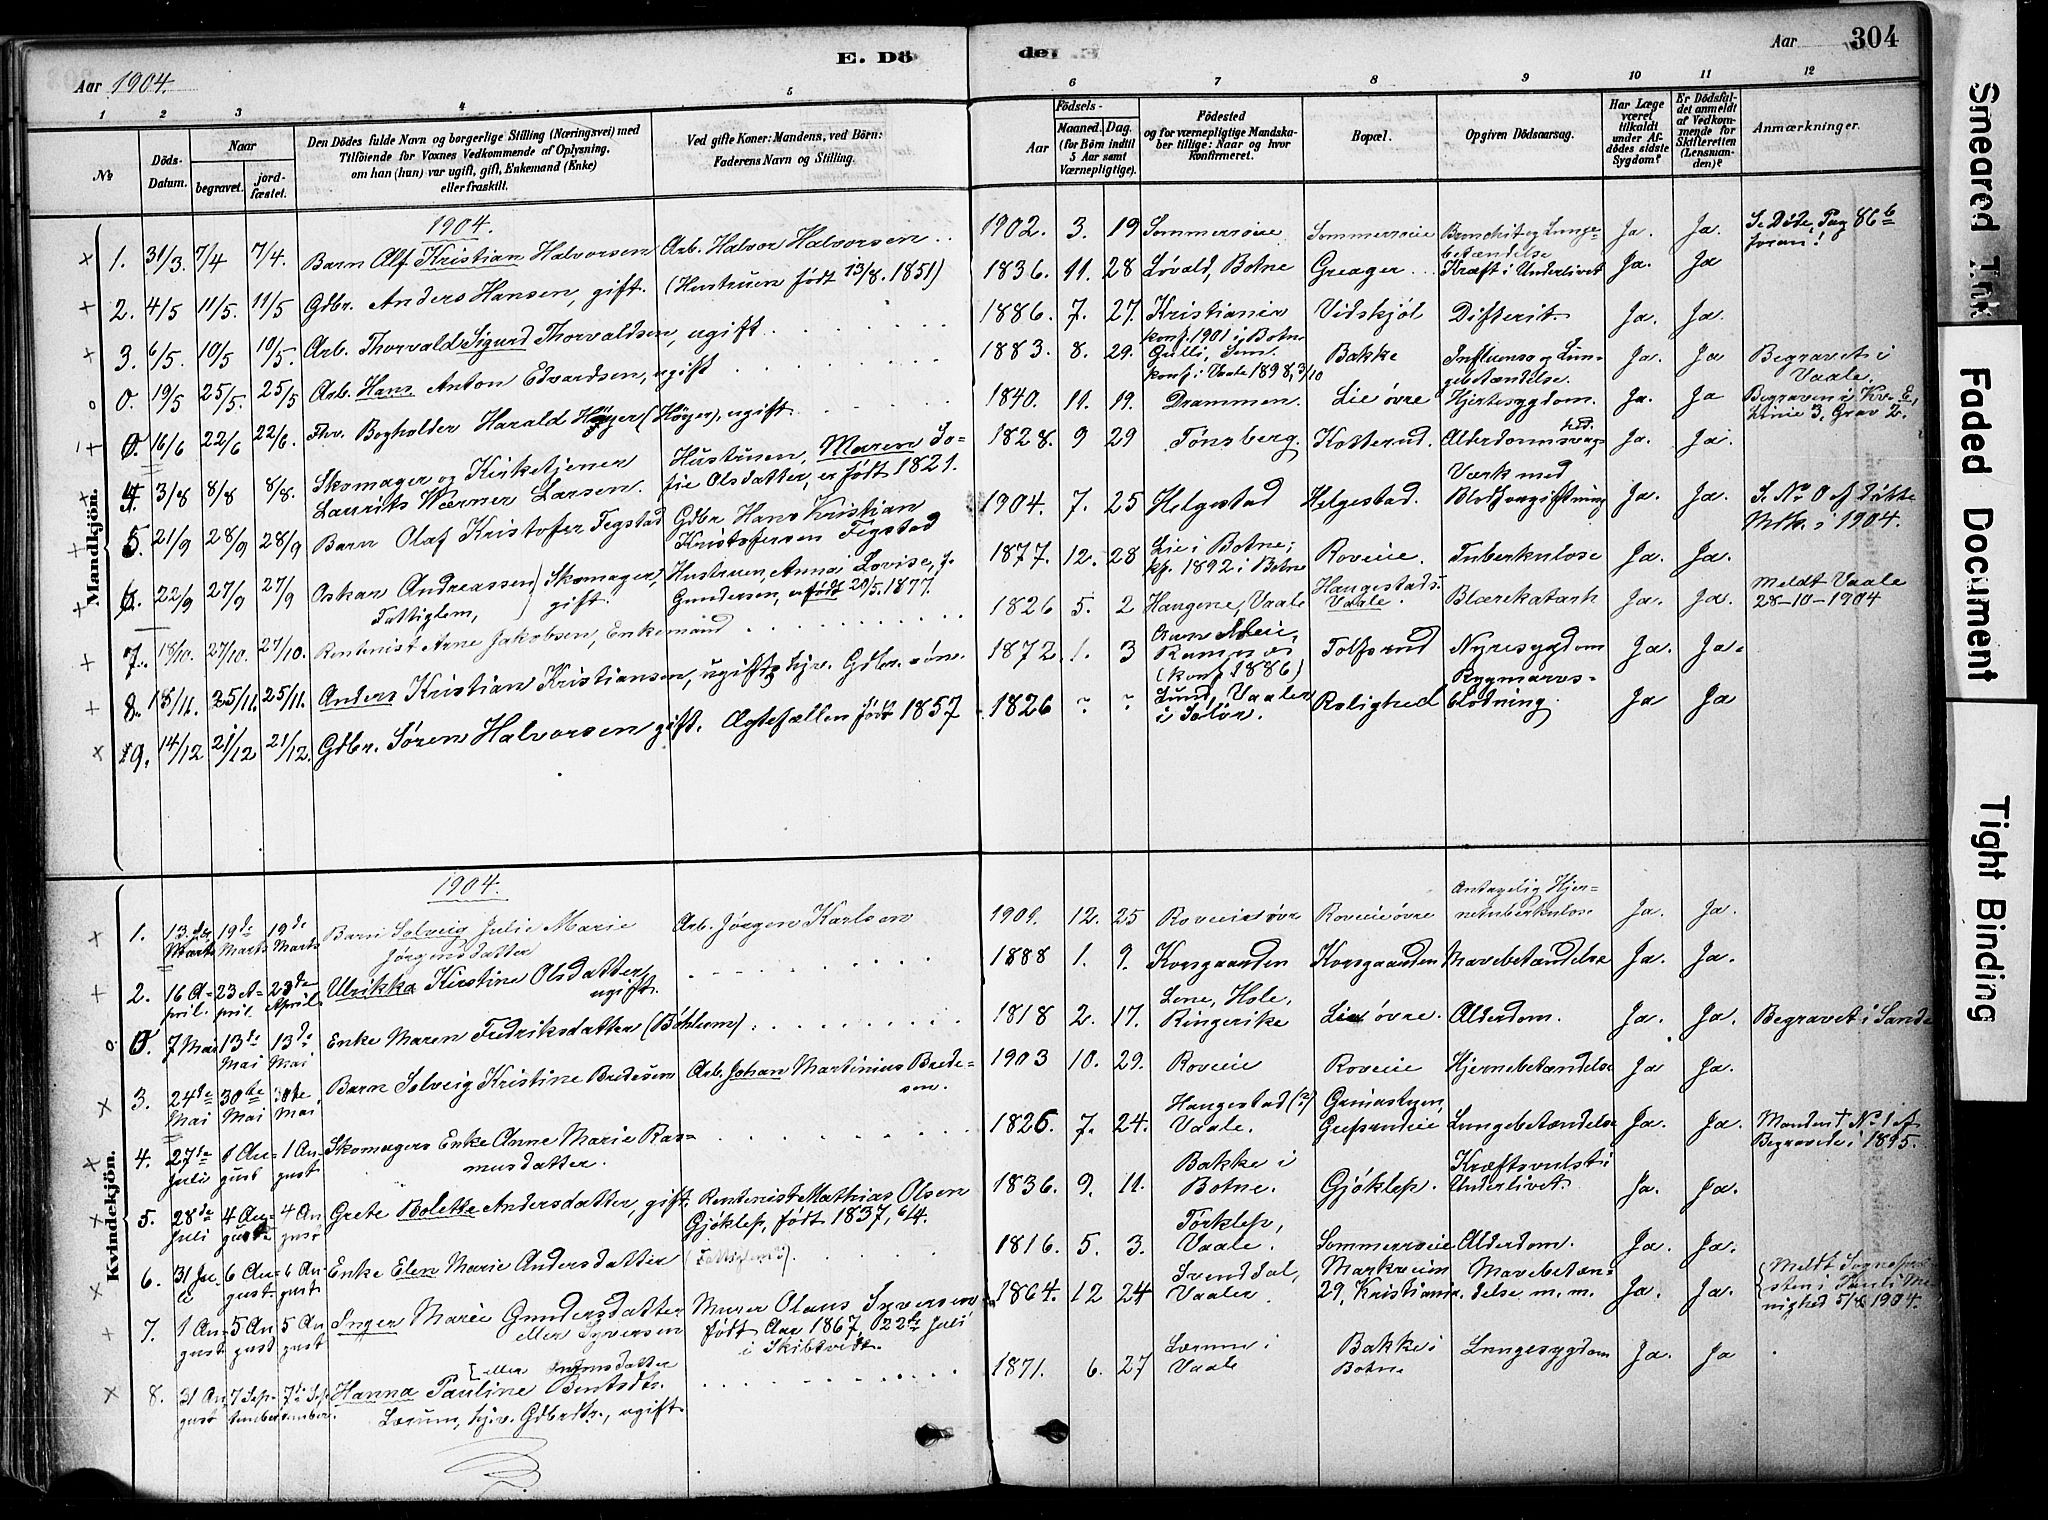 E. Döde.
304
Aar 1904.
Aar
1 2 3 4 5 6 7 8 9 10 11 12
No
Döds-Datum.
Naar
begravet.
jordfæstet.
Den Dödes fulde Navn og borgerlige Stilling (Næringsvei) med
Tilföiende for Voxnes Vedkommende af Oplysning,
om han (hun) var ugift, gift, Enkemand (Enke)
eller fraskilt.
Ved gifte Koner: Mandens, ved Börn:
Faderens Navn og Stilling.
Födsels-
Aar
Maaned. Dag.
(for Börn indtil 5 Aar samt Værnepligtige).
Födested
og for værnepligtige Mandskaber tillige: Naar og hvor Konfirmeret.
Bopæl.
Opgiven Dödsaarsag.
Har Læge været tilkaldt under Afdödes sidste Sygdom?
Er Dödsfaldet anmeldt af Vedkommende for Skifteretten (Lensmanden)?
Anmærkninger.
Mandkjön.
1904.
1. 31/3. 7/4 7/4. Barn Alf Kristian Halvorsen Arb. Halvor Halvorsen 1902. 3. 19 Sommerrøeie Sommerrøeie Bronchit og Lungebetændelse Ja. Ja. Se Døde, Pag 86b foran!
2. 4/5 11/5. 11/5 Gdbr. Anders Hansen, gift. (Hustruen født 13/8. 1851) 1836. 11. 28 Løvald, Botne Greager Kræft i Underlivet Ja. Ja
3. 6/5. 10/5 10/5. Arb. Thorvald Sigurd Thorvaldsen, ugift 1886. 7. 27. Kristiania konf. 1901 i Botne Vidskjøl Difterit. Ja. Ja.
0. 19/5 25/5. 25/5 Arb. Hans Anton Edvardsen, ugift 1883. 8. 29. Gulli, Sem. konf. i Vaale 1898, 3/10 Bakke Influensa og Lungebetændelse. Ja. Ja Begravet i Vaale.
0. 16/6 22/6 22/6. Fhv. Bogholder Harald Høyer (Höyer), ugift. 1840. 11. 19. Drammen. Lie øvre Hjertesygdom. Ja. Ja Begraven i Kv. E, Linie 3, Grav 2.
4. 3/8 8/8 8/8. Skomager og Kirketjener Laurits Werner Larsen. Hustruen, Maren Sofie Olsdatter, er født 1821. 1828. 9 29 Tønsberg. Kotterud. Alderdomssvaghed. Ja. Ja.
5. 21/9 28/9 28/9 Barn Olaf Kristofer Tegstad Gdbr. Hans Kristian Kristofersen Tegstad 1904. 7. 25 Helgestad Helgestad. Værk med Blodforgiftning Ja. Ja. S. No 0 af døtte Mdk. i 1904.
6. 22/9 27/9 27/9 Oskar Andreassen, Fattiglem, Skomager, gift. Hustruen, Anna Lovise, f. Gundersen, er født 29/5. 1877. 1877. 12. 28 Lie i Botne; kf. 1892 i Botne Roveie. Tuberkulose Ja. Ja.
7. 18/10. 27/10. 27/10. Rentenist Arne Jakobsen, Enkemand 1826 5. 2 Haugene, Vaale Haugestads. Vaale. Blærekatarh Ja. Ja. Meldt Vaale 28-10-1904
8. 18/11. 25/11 25/11. Anders Kristian Kristiansen, ugift, hjv. Gdbr. søn. 1872. 1. 3 Ramnes (konf. 1886) Tolfsrud Nyresygdom Ja. Ja.
9. 14/12 21/12 21/12. Gdbr. Søren Halvorsen gift. Ægtefællen født 1857 1826 ? ? Lund, Vaaler i Solør. Rolighed Rygmarvsblødning. Ja Ja
Kvindekjön.
1904.
1. 13.de Marts 19de Marts 19de Marts Barn Solveig Julie Marie Jørgensdatter Arb. Jørgen Karlsen 1901. 12. 25 Roveie øvre Roveie øvre Antagelig Hjernetuberkulose Ja. Ja.
2. 16 April. 23 April. 23de April. Ulrikka Kirstine Olsdatter, ugift. 1888 1. 9. Korsgaarden Korsgaarden Mavebetændelse Ja. Ja.
0. 7 Mai 13de Mai 13de Mai Enke Maren Fredriksdatter (Bohlum) 1818 2. 17. Lene, Hole, Ringerike Lie øvre. Alderdom. Ja. Ja. Begravet i Sande
3. 24de Mai 30te Mai 30te Mai Barn Solveig Kristine Bredesen Arb. Johan Martinius Bredesen. 1903 10. 29. Roveie Roveie Hjernebetændelse Ja Ja.
4. 27de Juli 1 August 1 August Skomagers Enke Anne Marie Rasmusdatter. 1826. 7. 24. Haugestad (?) Vaale. Lungebetændelse Ja. Ja. Manden † No 1 Af Begravede i 1895.
5. 28de Juli 4 August 4 August Grete Bolette Andersdatter, gift. Rentenist Mathias Olsen Gjøklep, født 1837, 6/4. 1836. 9. 11. Bakke i Botne. Gjøklep. Kræftsvulst i Underlivet. Ja. Ja.
6. 31 Juli 6 August. 6 August Enke Elen Marie Andersdatter (Fattiglem?). 1816. 5. 3. Torklep, Vaale. Sommerrøeie Alderdom. Ja. Ja.
7. 1 August 5 August 5 August Inger Marie Gundersdatter eller Syversen Murer Olaus Syversen født Aar 1867, 22de Juli i Skibtvedt. 1864. 12 24 Svenddal, Vaaler Markveien 29, Kristiania. Mavebetændelse m.m. Ja. Ja. Meldt Sognepræsten i Pauli Menighed 5/8 1904.
8. 31 August 7 September 7de September. Hanna Pauline Berntsdtr. (eller Antonsdatter Lærum, hjv. Gdbrdtr., ugift. 1871. 6. 27 Lærum i Vaale Bakke i Botne Lungesygdom Ja. Ja
Smeared Ink
Faded Document
Tight Binding